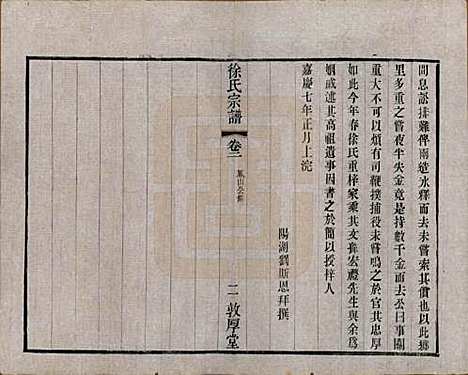 間息訟排難俾兩造冰釋而去未嘗索其償也以此鄉
里多重之嘗夜半失金竟是持數千金而去公曰事關
重大不可有司鞭撲捕役未嘗鳴之於官其忠厚
如此今年春徐氏重梓家乘其文彝宏禮先生與余為
姻戚述其高祖遺事因書之於簡以授梓人
嘉慶七年正月上浣
陽湖劉斯恩拜撰
徐氏宗譜
卷二
鳳山公傳
二
敦厚堂